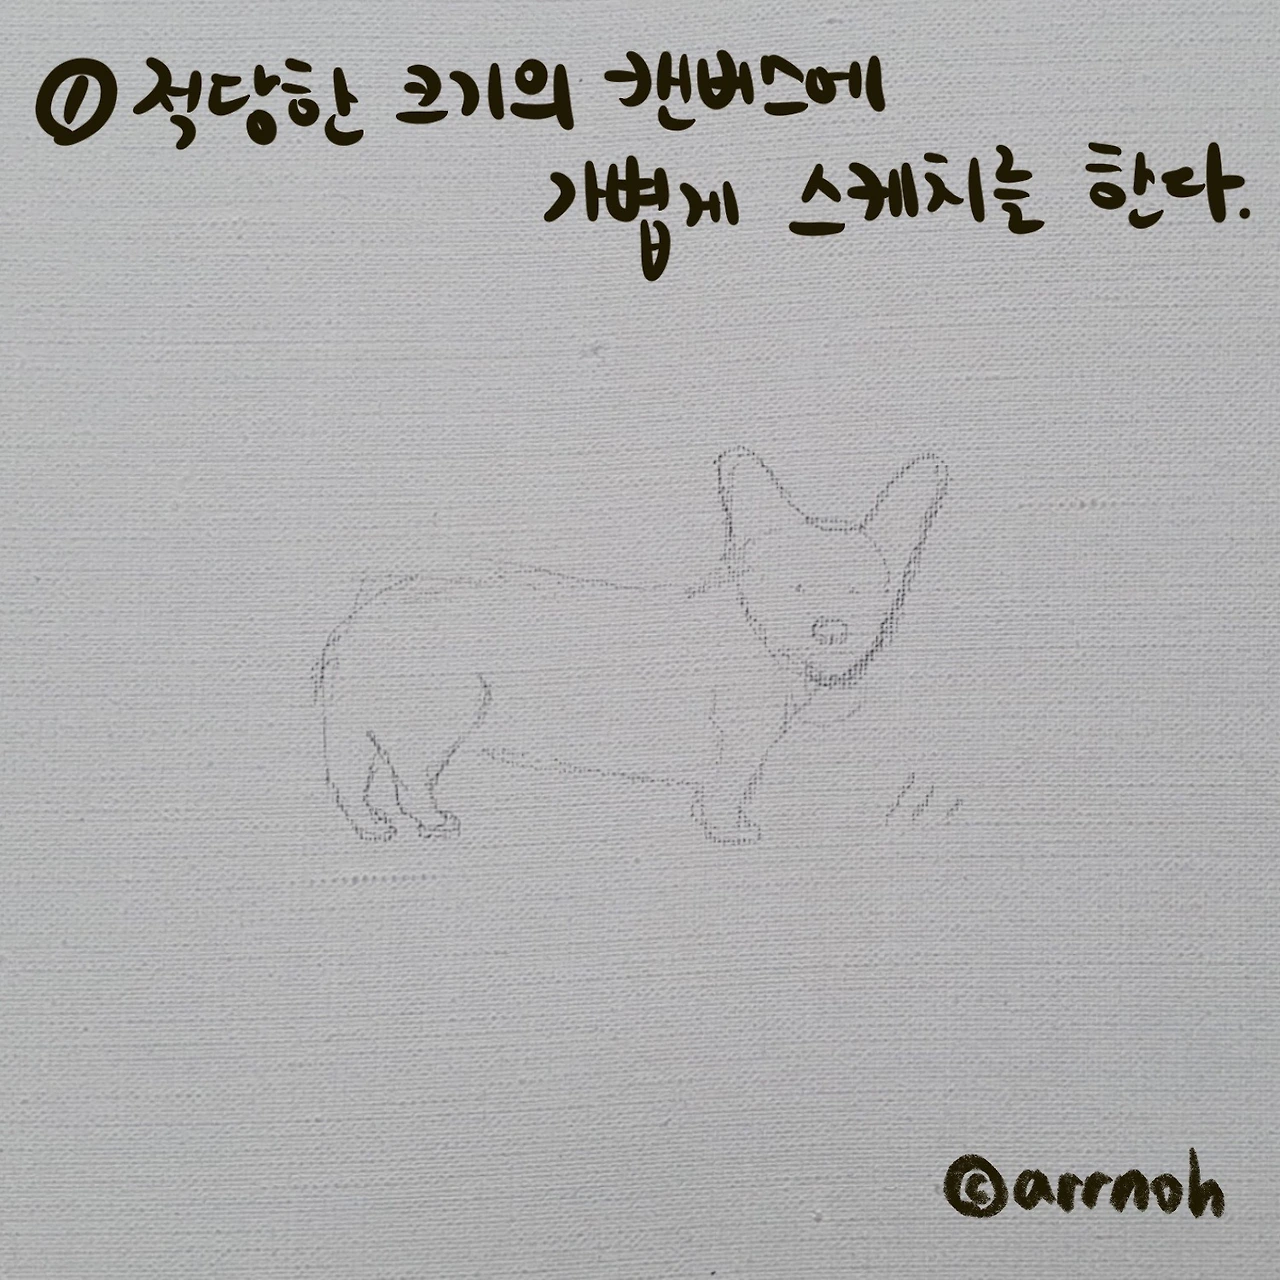 ① 적당한 크기의 캔버스에
가볍게 스케치를 한다.
©arrnoh